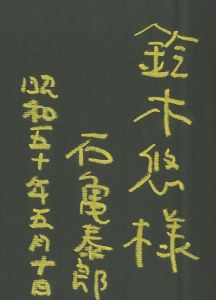 鈴木悠様
石亀泰郎
昭和五十年五月十日